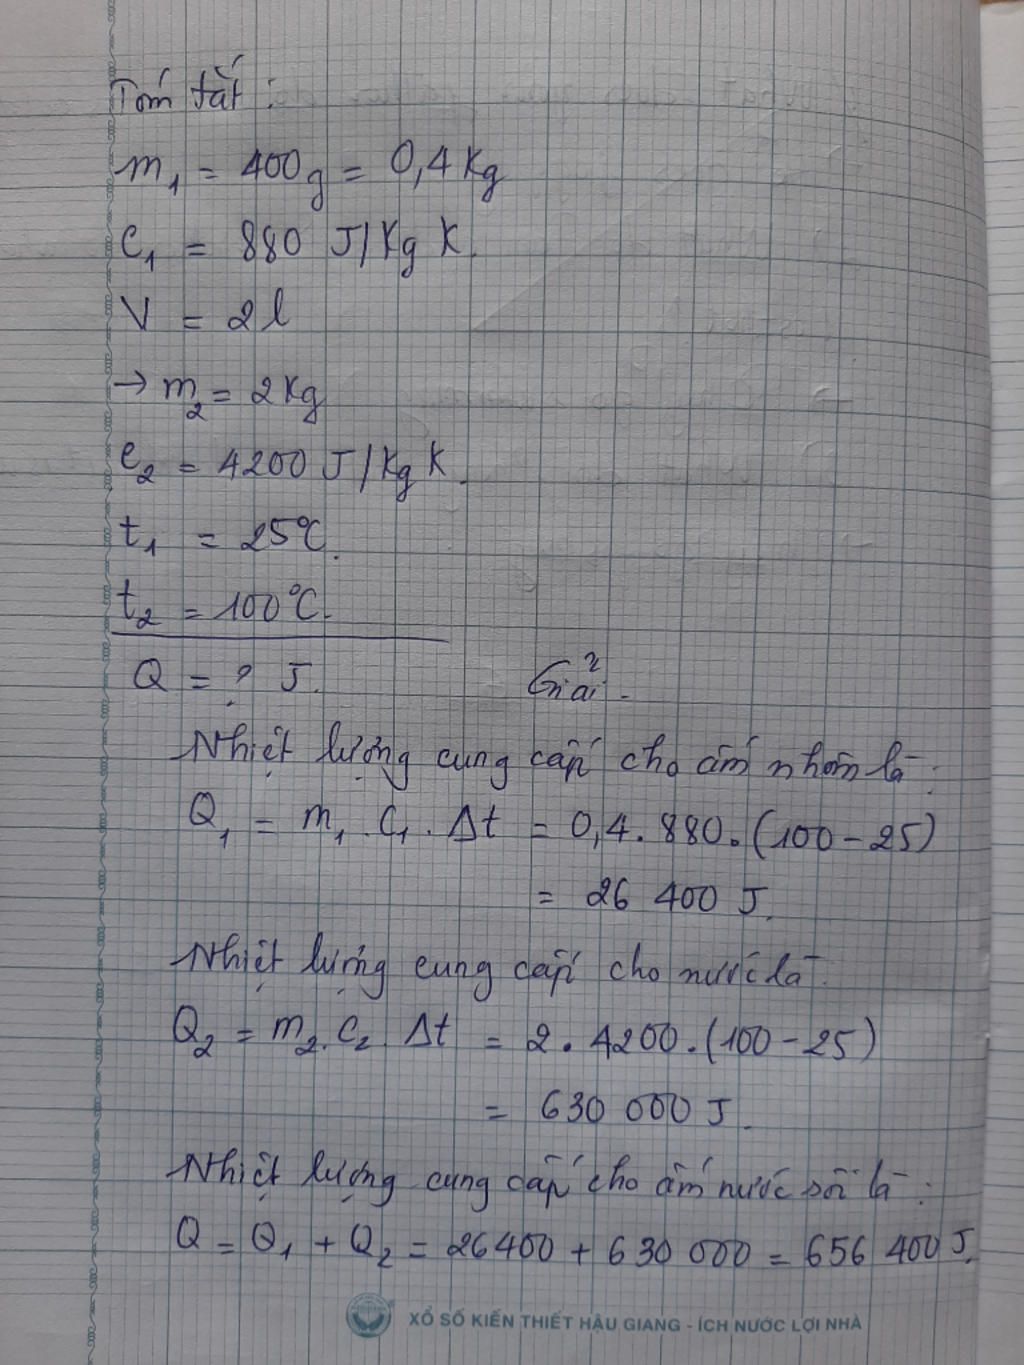 Tóm tắt :
m₁ = 400g = 0,4 Kg
C₁ = 880 J/Kg K.
V = 2l
→ m₂ = 2Kg
C₂ = 4200 J/Kg K.
t₁ = 25°C.
t₂ = 100°C.
Q = ? J.
Giải.
Nhiệt lượng cung cấp cho ấm nhôm là :
Q₁ = m₁ . C₁ . Δt = 0,4 . 880 . (100 - 25)
= 26 400 J.
Nhiệt lượng cung cấp cho nước là
Q₂ = m₂ . C₂ . Δt = 2 . 4200 . (100 - 25)
= 630 000 J.
Nhiệt lượng cung cấp cho ấm nước sôi là :
Q = Q₁ + Q₂ = 26400 + 630 000 = 656 400 J.
XỔ SỐ KIẾN THIẾT HẬU GIANG - ÍCH NƯỚC LỢI NHÀ